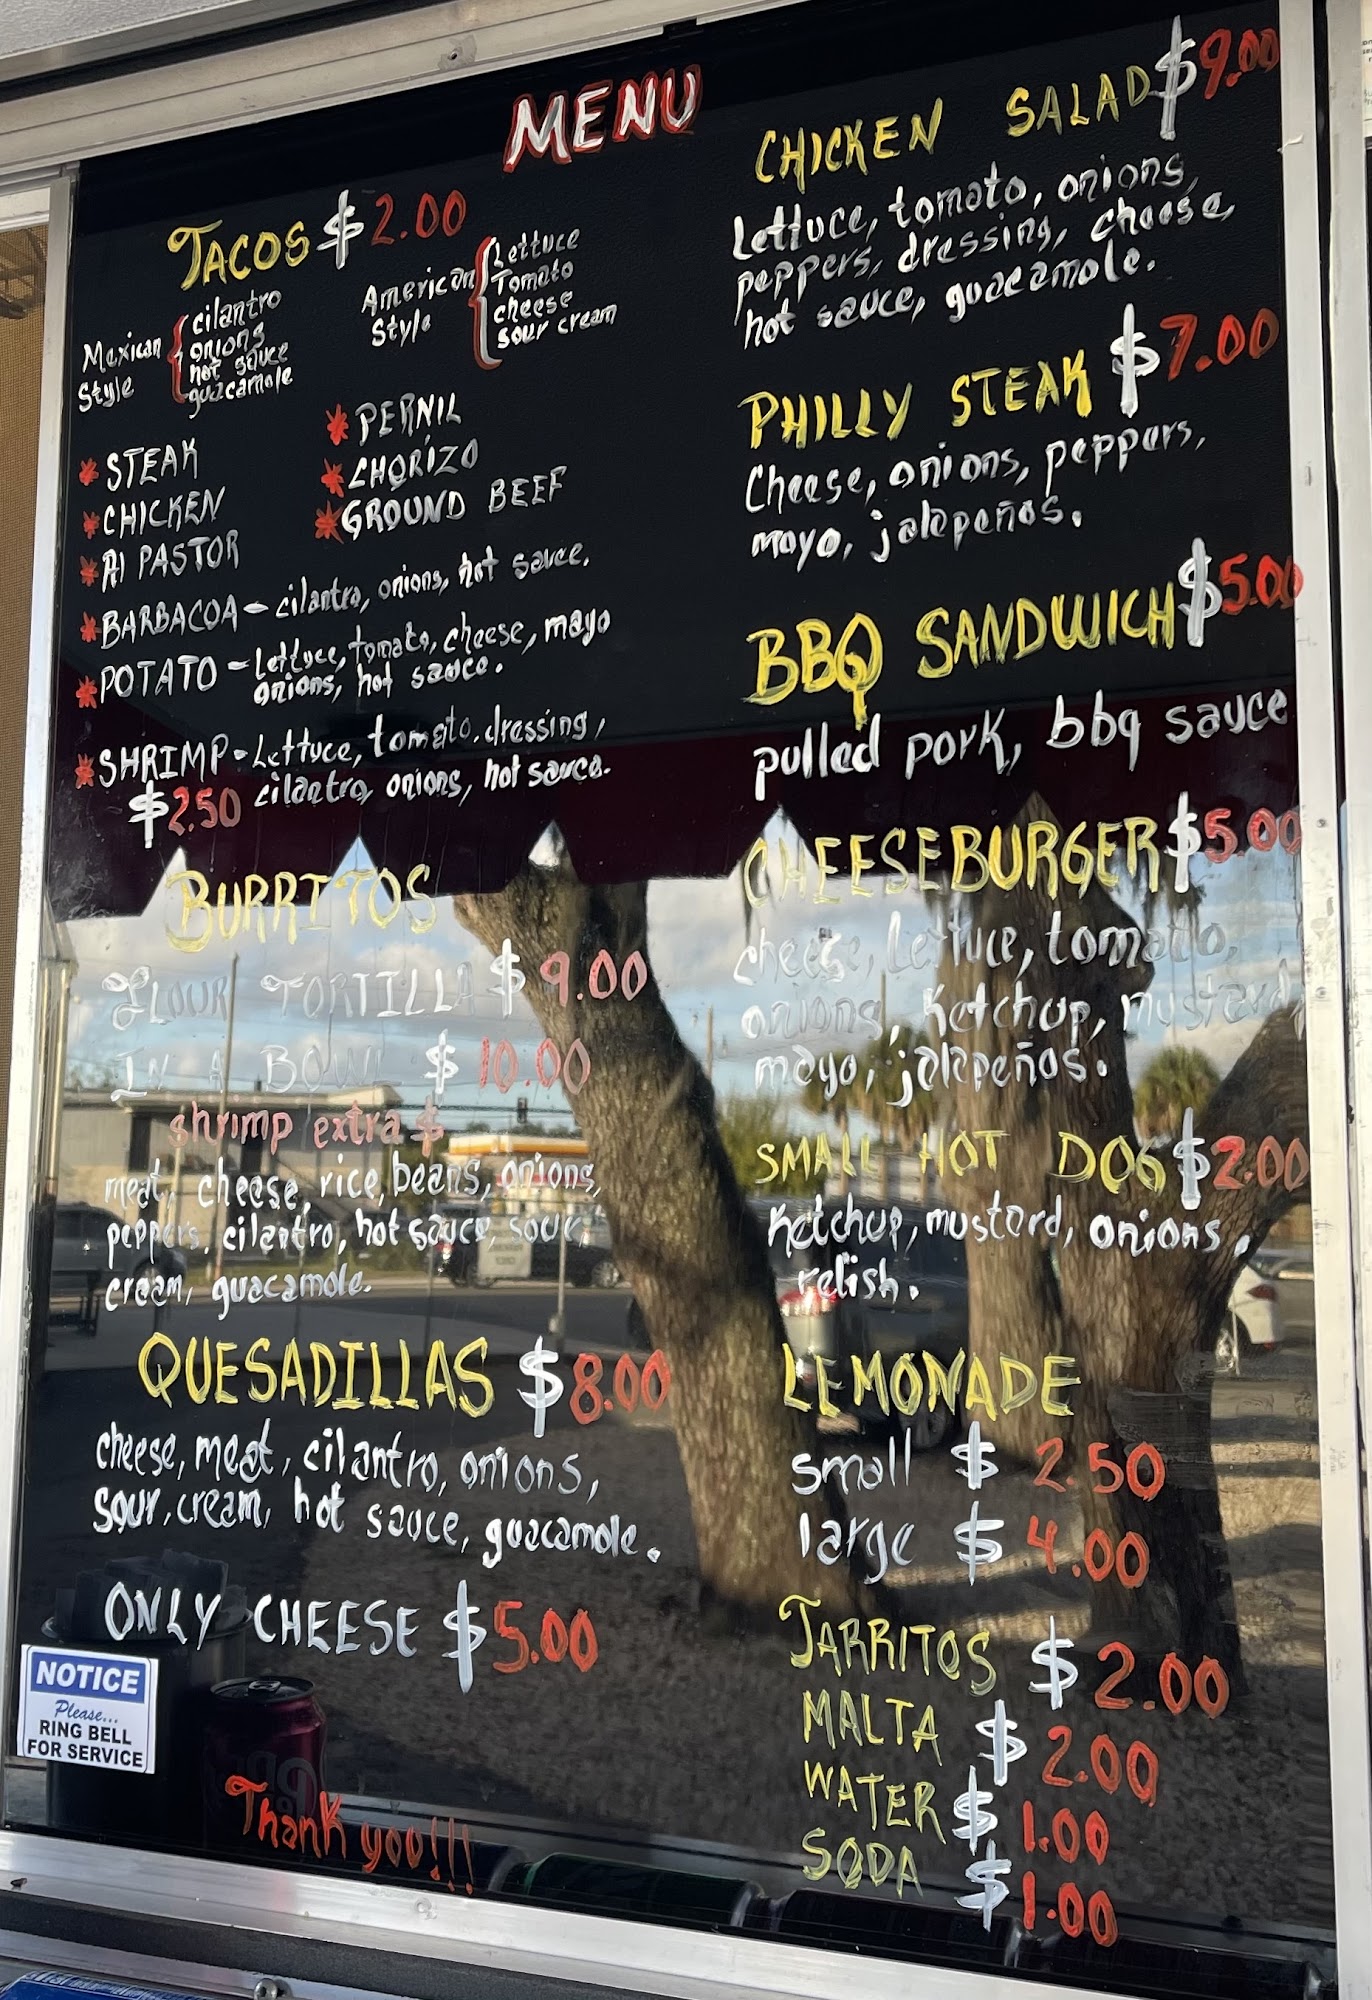 MENU
TACOS $2.00
Mexican Style
cilantro
onions
hot sauce
guacamole
American Style
Lettuce
Tomato
cheese
sour cream
* STEAK
* CHICKEN
* Al PASTOR
* PERNIL
* CHORIZO
* GROUND BEEF
* BARBACOA - cilantro, onions, hot sauce.
* POTATO - Lettuce, tomato, cheese, mayo
onions, hot sauce.
* SHRIMP - Lettuce, tomato, dressing,
$2.50 cilantro, onions, hot sauce.
BURRITOS
FLOUR TORTILLA $9.00
IN A BOWL $10.00
shrimp extra $
meat, cheese, rice, beans, onions,
peppers, cilantro, hot sauce, sour
cream, guacamole.
QUESADILLAS $8.00
cheese, meat, cilantro, onions,
sour, cream, hot sauce, guacamole.
ONLY CHEESE $5.00
NOTICE
Please...
RING BELL
FOR SERVICE
Thank you!!!
CHICKEN SALAD $9.00
Lettuce, tomato, onions,
peppers, dressing, cheese,
hot sauce, guacamole.
PHILLY STEAK $7.00
Cheese, onions, peppers,
mayo, jalapeños.
BBQ SANDWICH $5.00
pulled pork, bbq sauce
CHEESEBURGER $5.00
cheese, lettuce, tomato,
onions, Ketchup, mustard,
mayo, jalapeños.
SMALL HOT DOG $2.00
Ketchup, mustard, onions,
relish.
LEMONADE
small $2.50
large $4.00
JARRITOS $2.00
MALTA $2.00
WATER $1.00
SODA $1.00